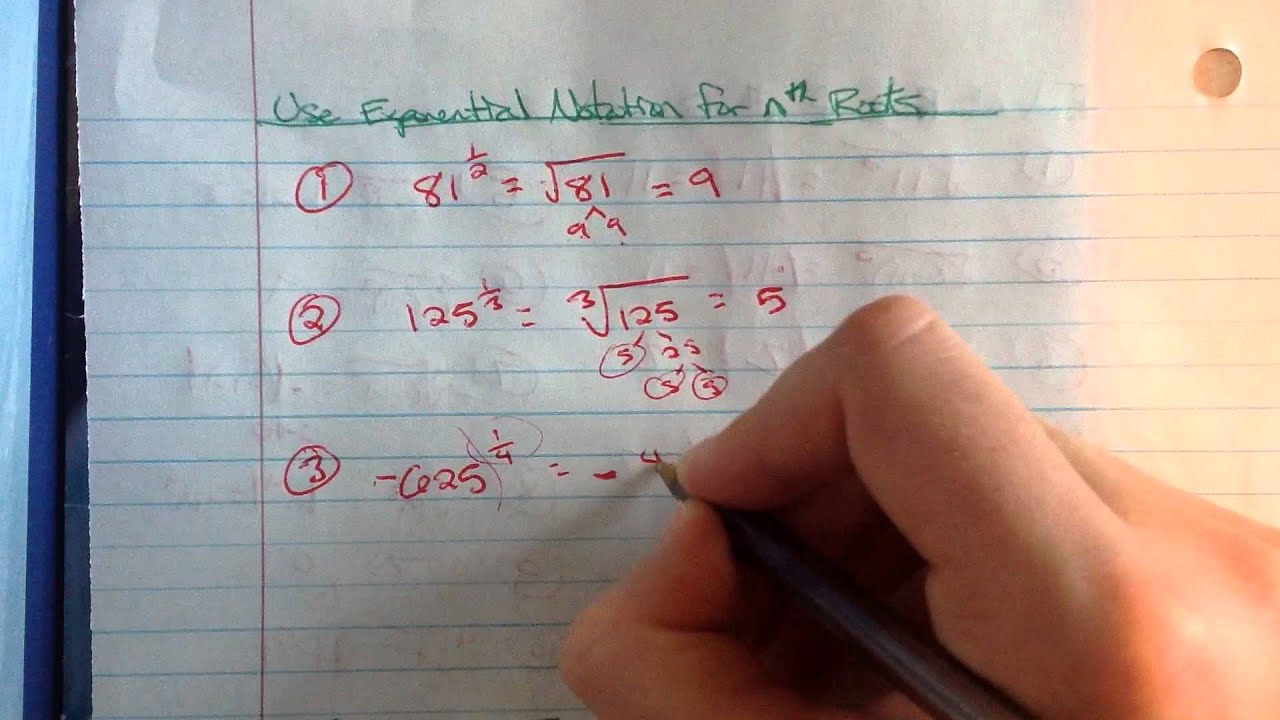 Use Exponential Notation for nth Roots
① 81^(1/2) = √81 = 9
9 9
② 125^(1/3) = ³√125 = 5
5 25
5 5
③ -625^(1/4) = - 4